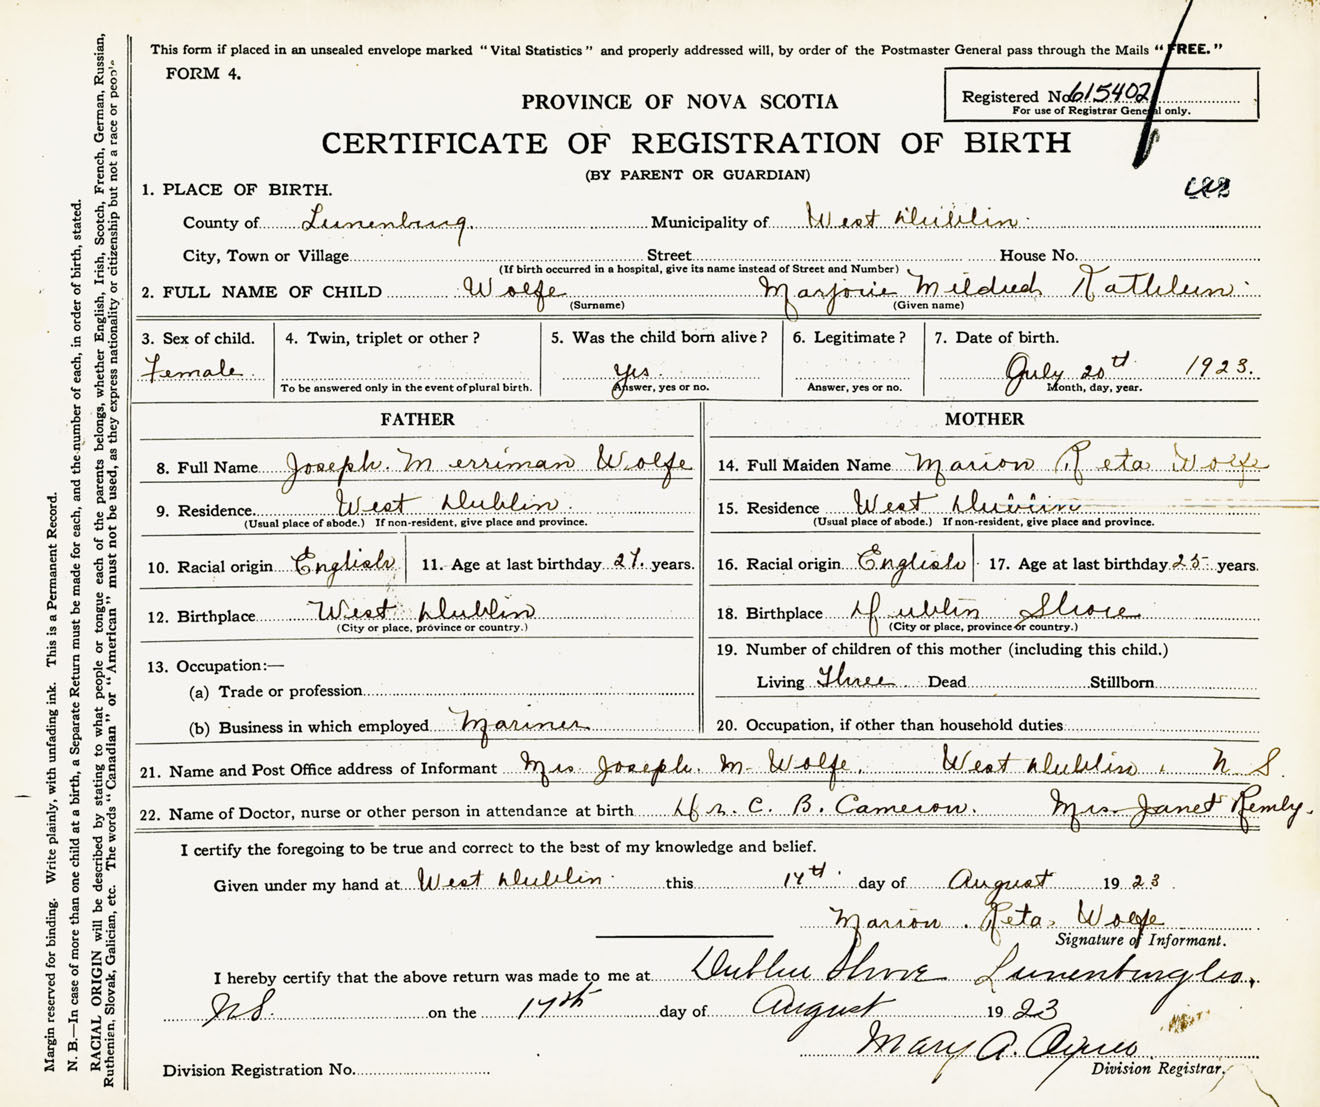 This form if placed in an unsealed envelope marked "Vital Statistics" and properly addressed will, by order of the Postmaster General pass through the Mails "FREE."
FORM 4.
Registered No. 615402
For use of Registrar General only.
PROVINCE OF NOVA SCOTIA
CERTIFICATE OF REGISTRATION OF BIRTH
(BY PARENT OR GUARDIAN)
1. PLACE OF BIRTH.
County of Lunenburg. Municipality of West Dublin.
City, Town or Village Street House No.
(If birth occurred in a hospital, give its name instead of Street and Number)
2. FULL NAME OF CHILD Wolfe Marjorie Mildred Kathleen.
(Surname) (Given name)
3. Sex of child. 4. Twin, triplet or other? 5. Was the child born alive? 6. Legitimate? 7. Date of birth.
Female. Yes. July 20th 1923.
To be answered only in the event of plural birth. Answer, yes or no. Answer, yes or no. Month, day, year.
FATHER MOTHER
8. Full Name Joseph. Merriman Wolfe 14. Full Maiden Name Marion Reta Wolfe
9. Residence. West Dublin. 15. Residence West Dublin
(Usual place of abode.) If non-resident, give place and province. (Usual place of abode.) If non-resident, give place and province.
10. Racial origin English 11. Age at last birthday 27. years. 16. Racial origin English 17. Age at last birthday 25 years.
12. Birthplace West Dublin 18. Birthplace Dublin Shore
(City or place, province or country.) (City or place, province or country.)
13. Occupation:— 19. Number of children of this mother (including this child.)
(a) Trade or profession Living Three Dead Stillborn
(b) Business in which employed Mariner 20. Occupation, if other than household duties
21. Name and Post Office address of Informant Mrs Joseph. M. Wolfe. West Dublin. N S.
22. Name of Doctor, nurse or other person in attendance at birth Dr. C. B. Cameron. Mrs. Janet Remly.
I certify the foregoing to be true and correct to the best of my knowledge and belief.
Given under my hand at West Dublin. this 17th day of August 1923.
Marion. Reta Wolfe
Signature of Informant.
I hereby certify that the above return was made to me at Dublin Shore Lunenburg Co.,
NS. on the 17th day of August 1923
Mary A.
Division Registration No. Division Registrar.
Margin reserved for binding. Write plainly, with unfading ink. This is a Permanent Record.
N. B.—In case of more than one child at a birth, a Separate Return must be made for each, and the number of each, in order of birth, stated.
RACIAL ORIGIN will be described by stating to what people or tongue each of the parents belongs, whether English, Irish, Scotch, French, German, Russian,
Ruthenian, Slovak, Galician, etc. The words "Canadian" or "American" must not be used, as they express nationality or citizenship but not a race or people